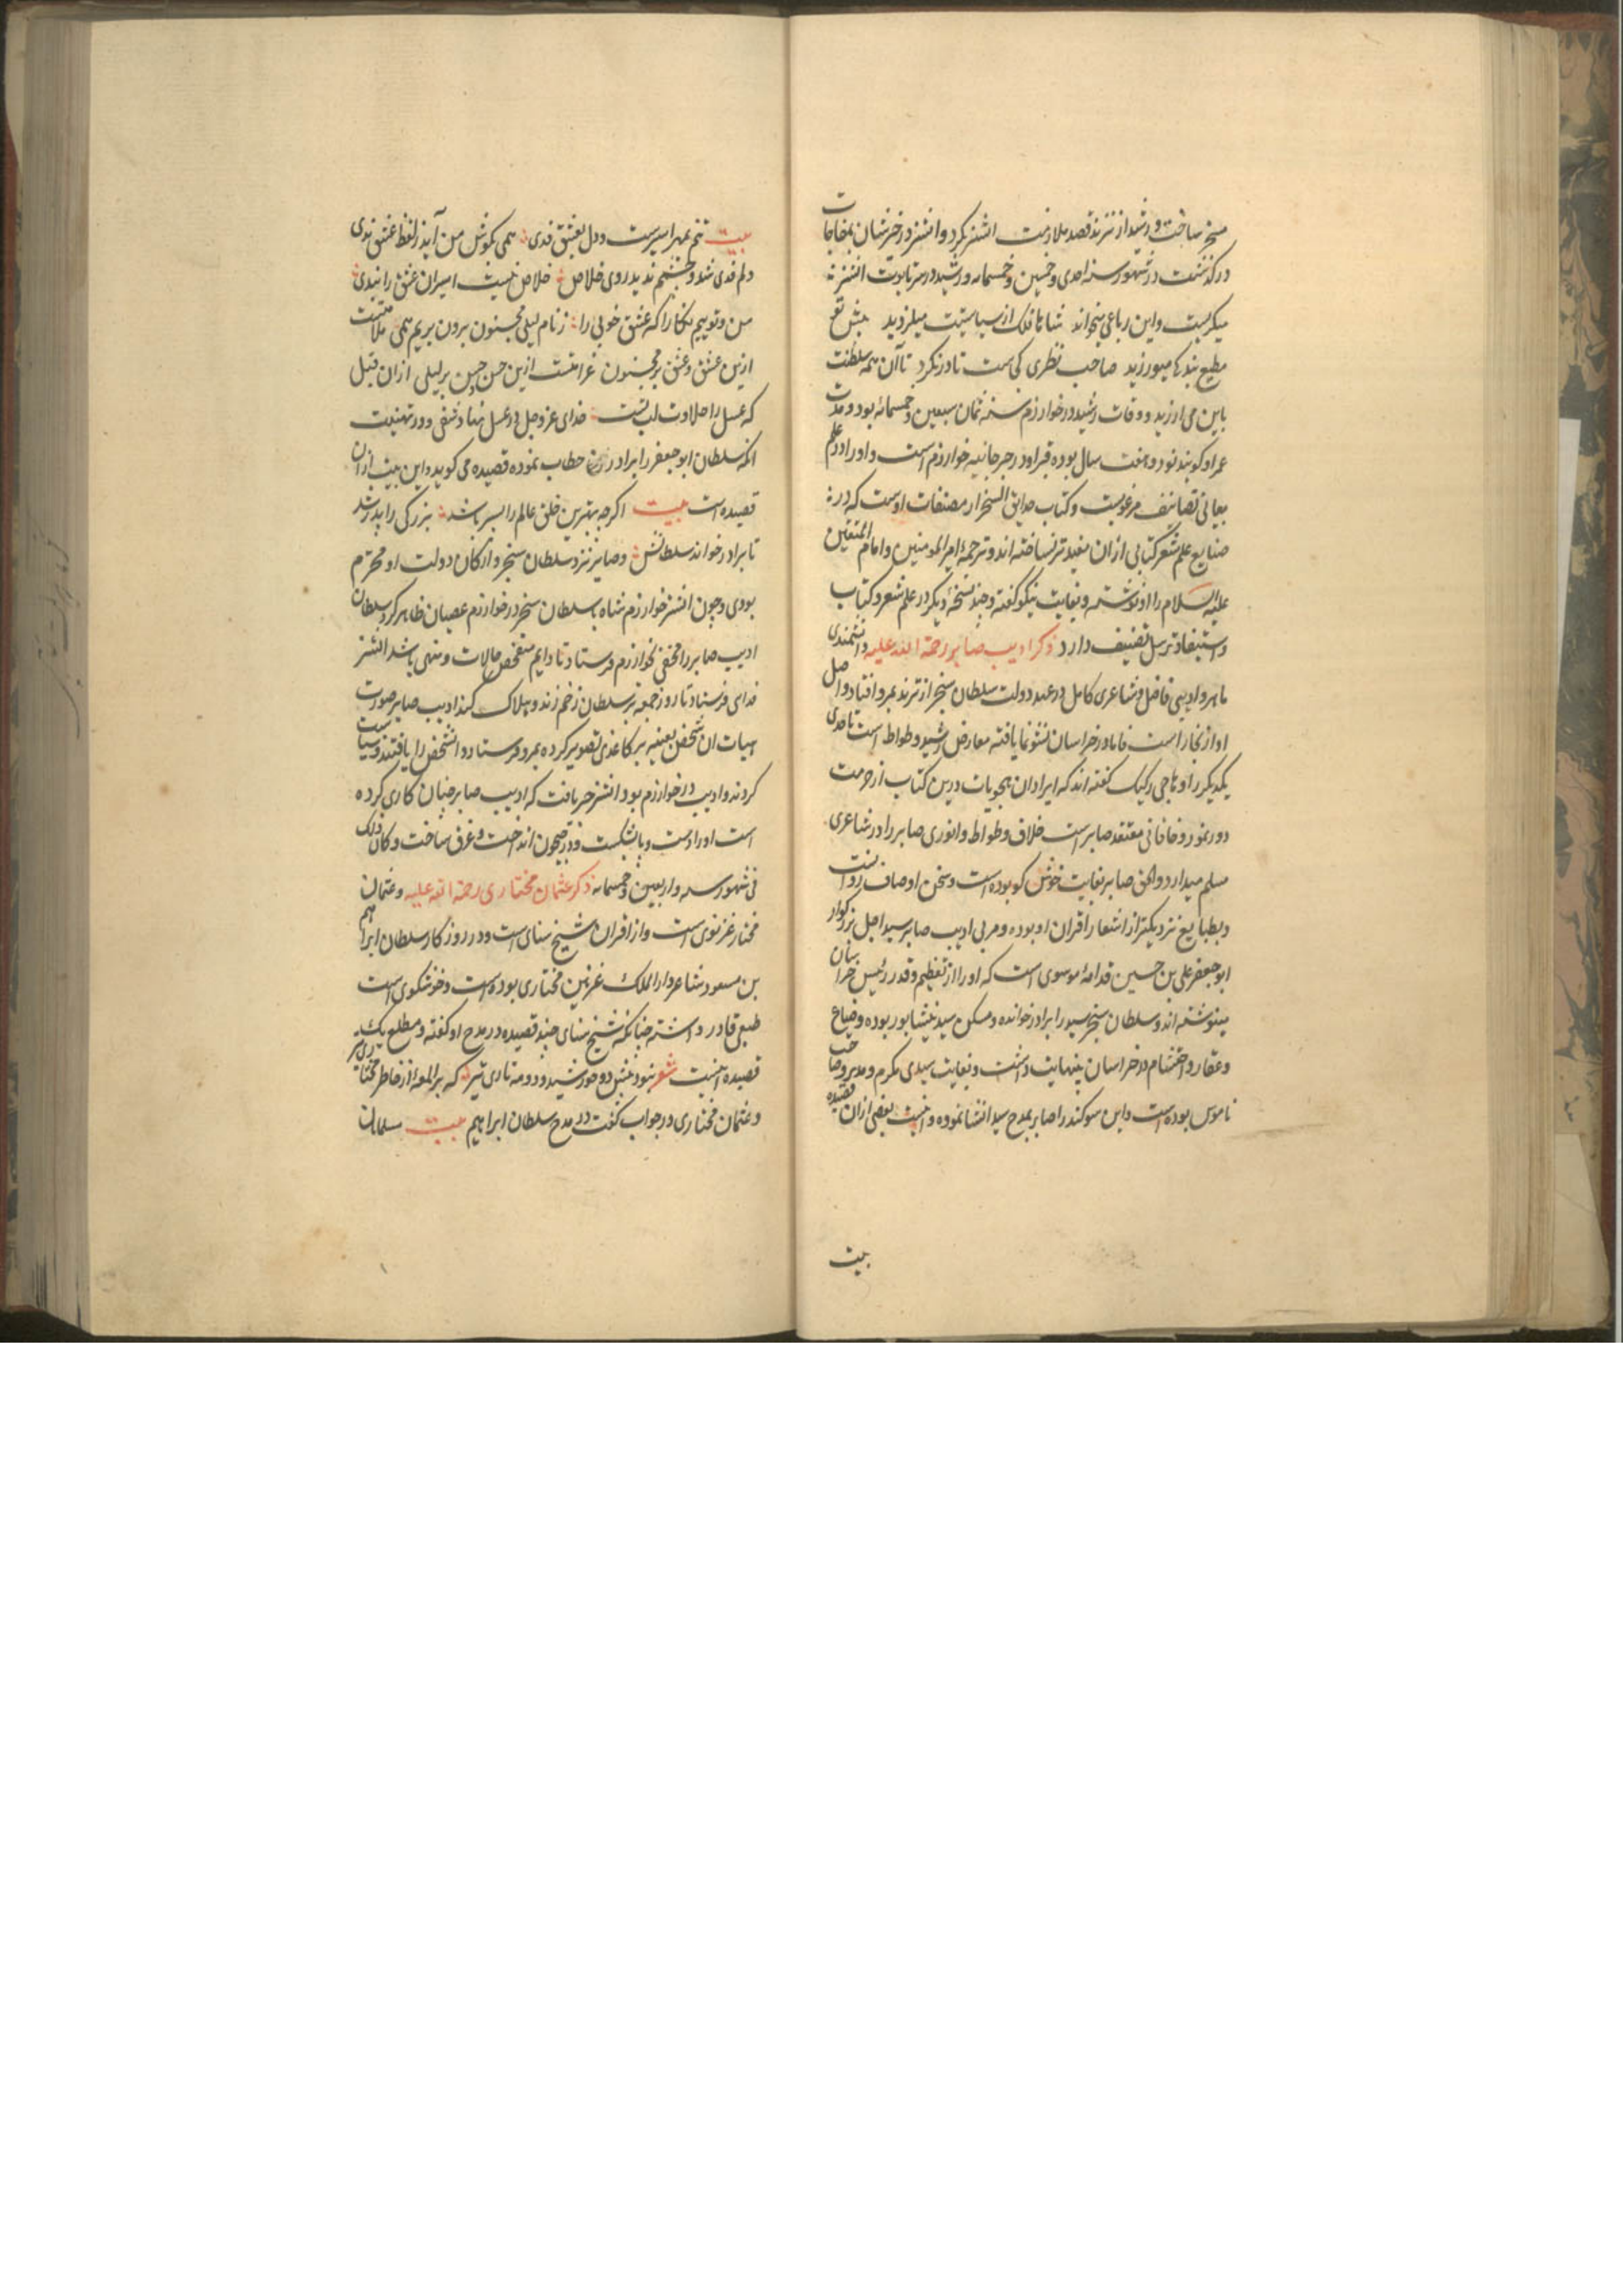 مسخر ساخت و رشید از ترند قصد ملازمت اتسز بکرد و اتسز در خبرشان بمفاجات
درگذشت در شهور سنه احدی و خمسین و خمسمایه و رشید در سر تابوت اتسز
میگریست و این رباعی میخواند شاها فلک از سیاستت میلرزید پیش تو
مطیع بندگی میورزید صاحب نظری کجاست تا درنگرد تا آن همه سلطنت
باین می ارزید و وفات رشید در خوارزم سنه ثمان سبعین و خمسمائه بود و مدت
عمر او گویند نود و هفت سال بوده قبر او در جرجانیه خوارزم است و او را در علم
معانی تصانیف مرغوبست و کتاب حدایق السحر از مصنفات اوست که در
صنایع علم شعر کتابی ازان مفیدتر نساخته اند و ترجمه امیر المومنین و امام المتقین
علیه السلام را او نوشته و بغایت نیکو گفته و چند نسخه دیگر در علم شعر و کتاب
و استیفا و ترسل تصنیف دارد ذکر ادیب صابر رحمة الله علیه دانشمندی
ماهر و ادیبی فاضل و شاعری کامل در عهد دولت سلطان سنجر از ترند بمرو افتاد و اصل
او از بخاراست فاما در خراسان نشو نما یافته معارض رشید و طواط است تا حدی
یکدیگر را اهاجی رکیک گفته اند که ایراد آن هجویات درین کتاب از حرمت
دور نمود و خاقانی معتقد صابر است خلاف وطواط و انوری صابر را در شاعری
مسلم میدارد و الحق صابر بغایت خوش گو بوده است و سخن او صاف روانست
و بطبایع نزدیکتر از اشعار اقران او بوده و مربی ادیب صابر سید اجل بزرگوار
ابو جعفر علی بن حسین قدامه موسوی است که او را از تعظیم و قدر رئیس خراسان
مینوشته اند و سلطان سنجر سید را برادر خوانده و مسکن سید نیشابور بوده و ضیاع
و عقار و احتشام در خراسان بینهایت داشت و بغایت سیدی مکرم و مدبر و صاحب
ناموس بوده است و این سوکند را صابر بمدح سید انشا نموده و اینست بعضی ازان قصیده
بیت
بیت تنم بمهر اسیرست و دل بعشق فدی همی بکوش من آید ز لفظ عشق ندی
دلم فدی شد و چشمم ندید روی خلاص خلاص نیست اسیران عشق را بفدی
من و توییم نگارا که عشق خوبی را ز نام لیلی مجنون برون بریم همی ملامتست
ازین عشق و عشق بر مجنون غرامتست ازین حسن و حسن بر لیلی ازان قبل
که عسل را حلاوت لب تست خدای عز و جل در عسل نهاد شفی و در تهنیت
انکه سلطان ابو جعفر را برادر خطاب نموده قصیده می گوید و این بیت ازان
قصیده است بیت اگرچه بهترین خلق عالم را پسر باشد بزرگی را پدر شد
تا برادر خواند سلطانش و صابر نزد سلطان سنجر و ارکان دولت او محترم
بودی و چون اتسز خوارزم شاه با سلطان سنجر در خوارزم عصیان ظاهر کرد سلطان
ادیب صابر را مخفی بخوارزم فرستاد تا دایم متفحص حالات و منهی باشد اتسز
فدای فرستاد تا روز جمعه بر سلطان زخم زند و هلاک کند ادیب صابر صورت
هیات ان شخص بعینه بر کاغذی تصویر کرده بمرو فرستاد و انشخص را یافتند و سیاست
کردند و ادیب در خوارزم بود اتسز خبر یافت که ادیب صابر چنان کاری کرده
است او را دست و پا شکست و در جیحون انداخت و غرق ساخت و کان ذلک
فی شهور سنه و اربعین و خمسمایه ذکر عثمان مختاری رحمة الله علیه و عثمان
مختار غزنوی است و از اقران شیخ سنای است و در روزگار سلطان ابراهیم
بن مسعود شاعر دار الملک غزنین مختاری بوده است و خوشگوی است
طبعی قادر داشته چنانکه شیخ سنای چند قصیده در مدح او گفته و مطلع یک
قصیده اینست شعر نشود پیش دو خورشید و دو مه تاری تیر که برد لمعه از خاطر مختاری تیر
و عثمان مختاری در جواب گفت در مدح سلطان ابراهیم بیت مسلمانان